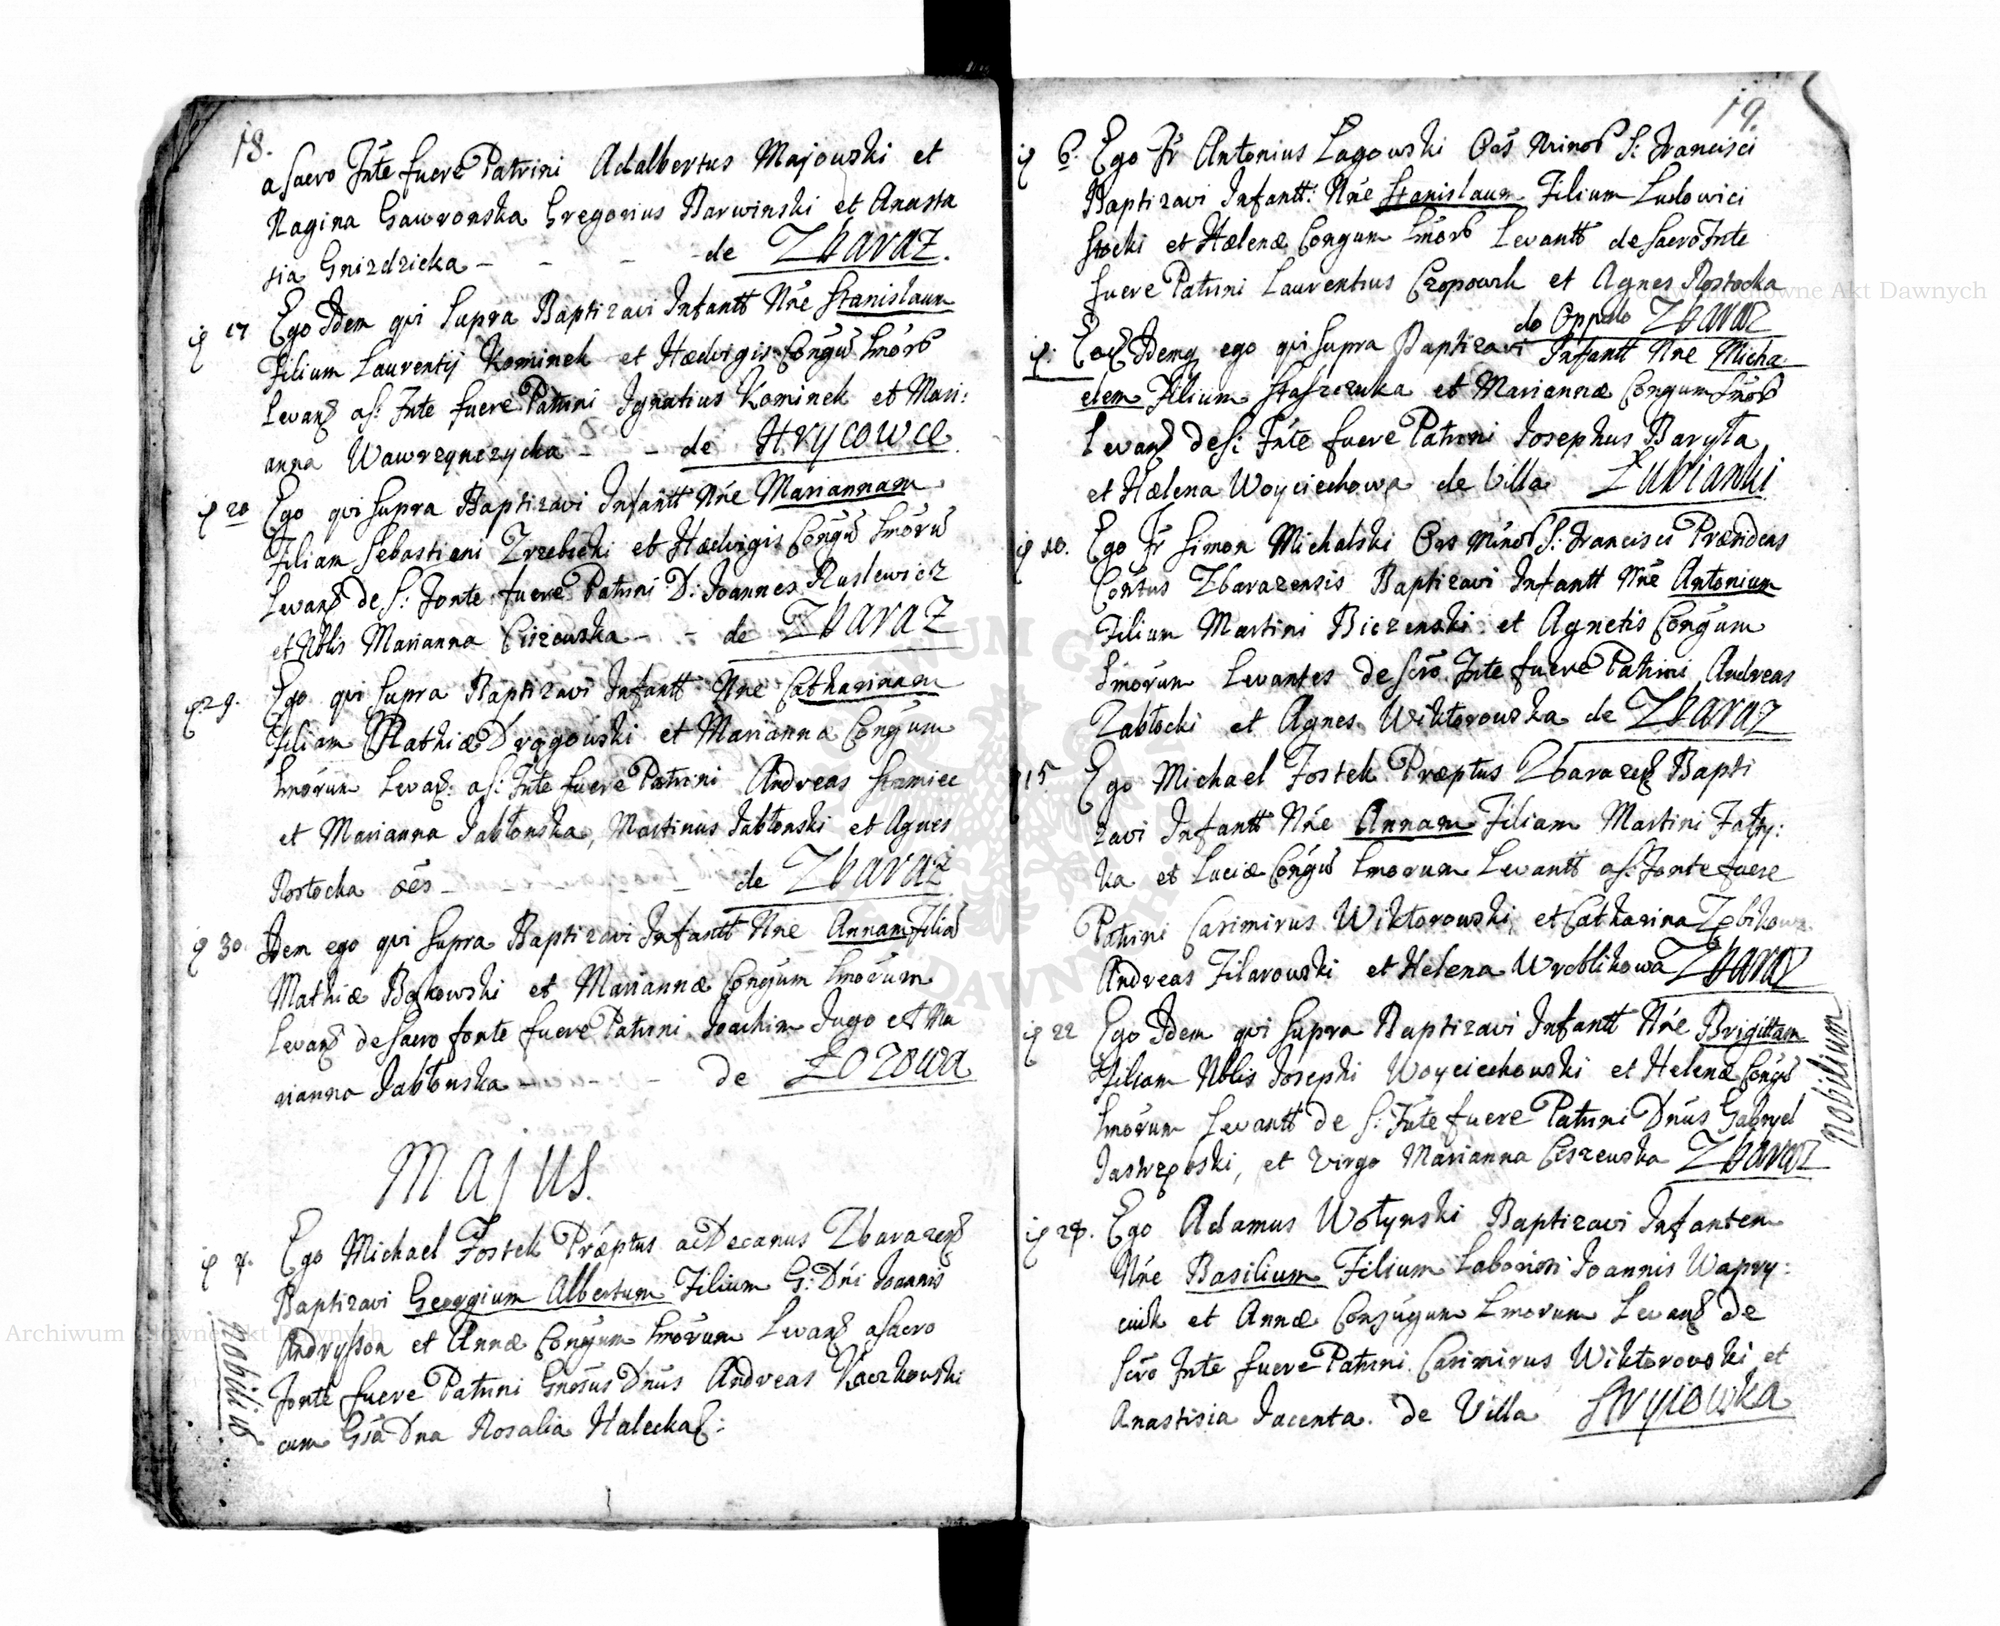 18.
a Sacro Fnte fuere Patrini Adalbertus Majowski et
Ragina Gawronska Gregorius Barwinski et Anasta
sia Gnizdzicka - - - - de Zbaraz.
17 Ego Idem qui Supra Baptizavi Infantt Nne Stanislaum
Filium Laurentij Kominek et Hædvigis Congū Lmorū
Levanꝫ a S: Fnte fuere Patrini Ignatius Kominek et Mari:
anna Wawrzynczycka - - de Hrycowce
20 Ego qui Supra Baptizavi Infantt Nne Mariannam
Filiam Sebastiani Zrzebicki et Hædvigis Congū Lmorū
Levanꝫ de S: Fonte fuere Patrini D: Joannes Ruslewicz
et Nblis Marianna Ciszewska - - de Zbaraz
29. Ego qui Supra Baptizavi Infantt Nne Catharinam
Filiam Mathiæ Dragowski et Marianna Congum
Lmorum Levanꝫ: a S: Fnte fuere Patrini Andreas
et Marianna Jabłonska, Martinus Jabłonski et Agnes
Rostocka oēs - - - de Zbaraz
30. Idem ego qui Supra Baptizavi Infantt Nne Annam Filiā
Mathiæ Bąkowski et Mariannæ Congum Lmorum
Levanꝫ de Sacro fonte fuere Patrini Joachim Jugo et Ma
rianna Jabłonska - - - de Łozowa
Majus.
7. Ego Michael Fostek Præptus ac Decanus Zbarazenꝫ
Baptizavi Georgium Albertum Filium G: Dni Joannis
Andrysson et Annæ Congum Lmorum Levanꝫ a Sacro
Fonte fuere Patrini Gnosus Dnus Andreas Kaczkowski
cum Gsa Dna Rosalia Halecka
nobiliū
19.
6. Ego Fr Antonius Lagowski Ors Minoꝝ S: Francisci
Baptizavi Infantt: Nne Stanislaum Filium Ludowici
Stocki et Hælenæ Congum Lmorꝝ Levantt de Sacro Fnte
fuere Patrini Laurentius et Agnes Rostocka
de Oppdo Zbaraz
Idemq ego qui Supra Baptizavi Infantt Nne Micha
elem Filium Staszczuka et Mariannæ Congum Lmorꝝ
Levanꝫ de S: Fnte fuere Patrini Josephus Baryła
et Hælena Woyciechowa de Villa Łubianki
10. Ego Fr Simon Michalski Ors Minoꝝ S: Francisci Præsidens
Contus Zbarazensis Baptizavi Infantt Nne Antonium
Filium Martini Biczenski et Agnetis Congum
Lmorum Levantes de Scro Fnte fuere Patrini Andreas
Zabłocki et Agnes Wiktorowska de Zbaraz
15 Ego Michael Fostek Præptus Zbarazenꝫ Bapti
zavi Infantt Nne Annam Filiam Martini
ka et Luciæ Congū Lmorum Levantt a S: Fonte fuere
Patrini Casimirus Wiktorowski et Catharina
Andreas Filarowski et Helena Wroblikowa Zbaraz
22 Ego Idem qui Supra Baptizavi Infantt Nne Brigittam
Filiam Nblis Josephi Woyciechowski et Helenæ Congū
Lmorum Levantt de S: Fnte fuere Patrini Dnus Gabryel
Jastrzębski, et Virgo Marianna Ciszewska Zbaraz
nobilium
28. Ego Adamus Wołynski Baptizavi Infantem
Nne Basilium Filium Laboriosi Joannis Wapry:
ciuk et Annæ Conjugum Lmorum Levanꝫ de
Scro Fnte fuere Patrini Casimirus Wiktorowski et
Anastisia Jacenta. de Villa Stryiowka
Archiwum Główne Akt Dawnych